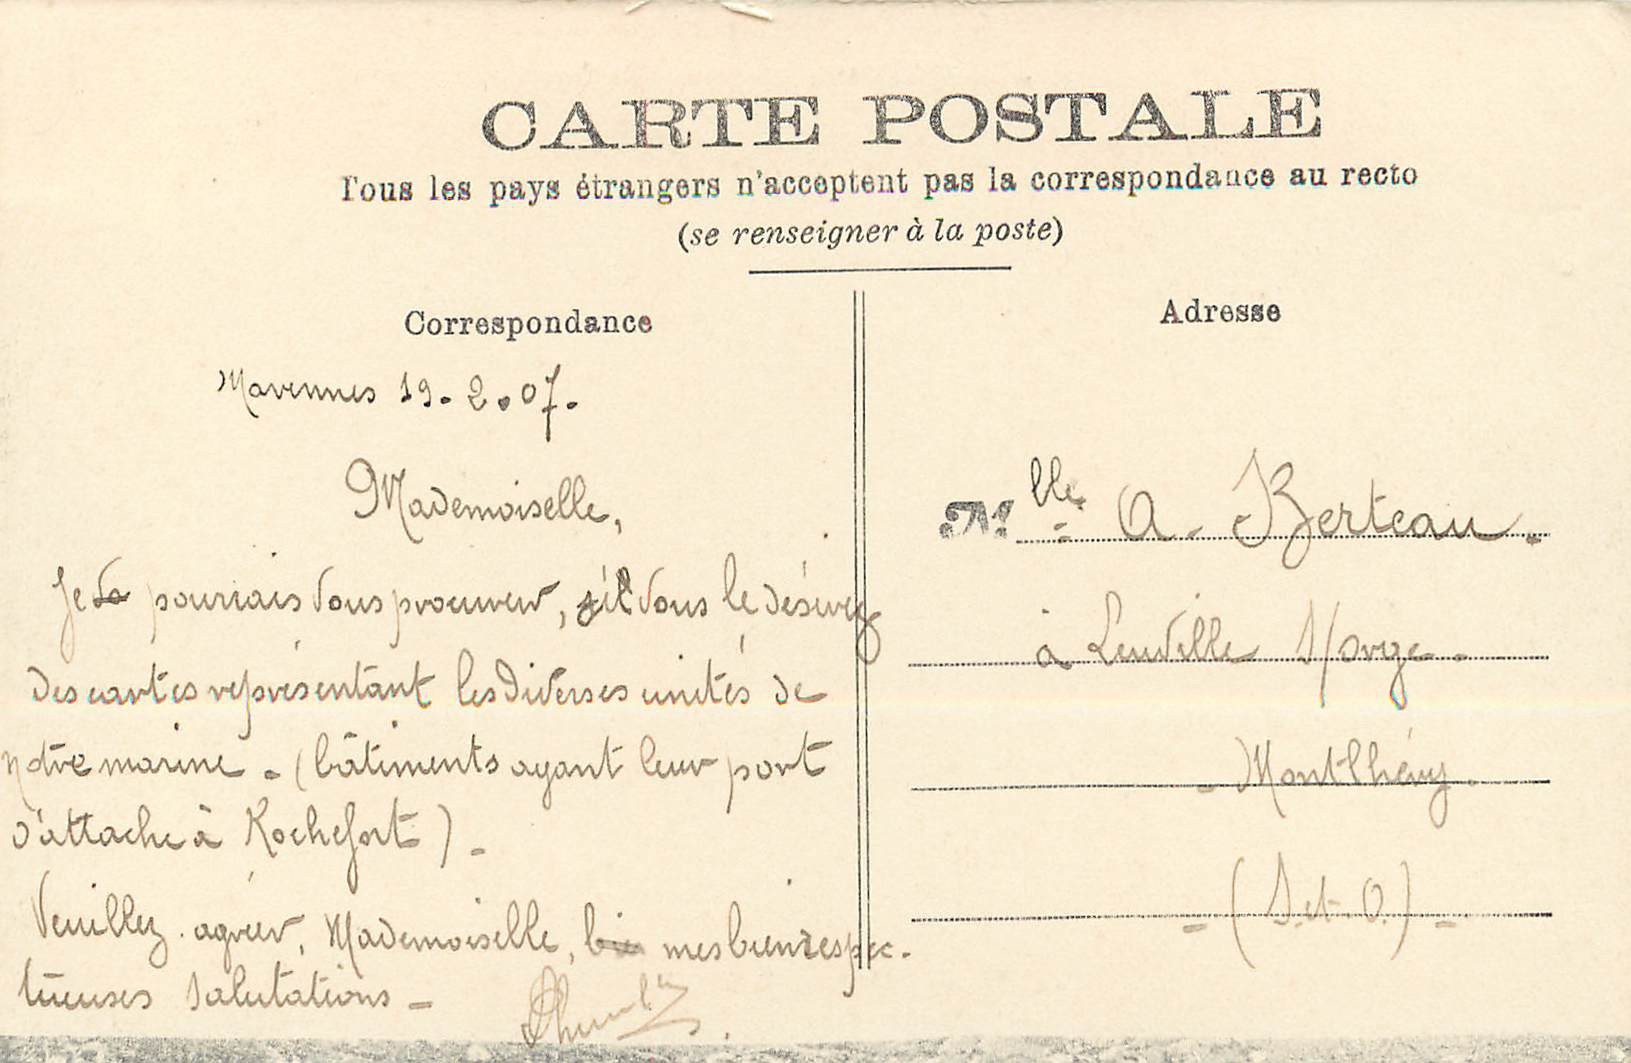 CARTE POSTALE
Tous les pays étrangers n'acceptent pas la correspondance au recto
(se renseigner à la poste)
Correspondance
Marennes 19-2.07-
Mademoiselle,
Je pourrais vous procurer, si vous le désirez
des cartes représentant les diverses unités de
notre marine - (bâtiments ayant leur port
d'attache à Rochefort) -
Veuillez agréer, Mademoiselle, mes bien respec-
tueuses salutations -
Adresse
Mlle A. Berteau -
à Leuville s/orge -
- Montlhéry -
- (S. et. O.) -